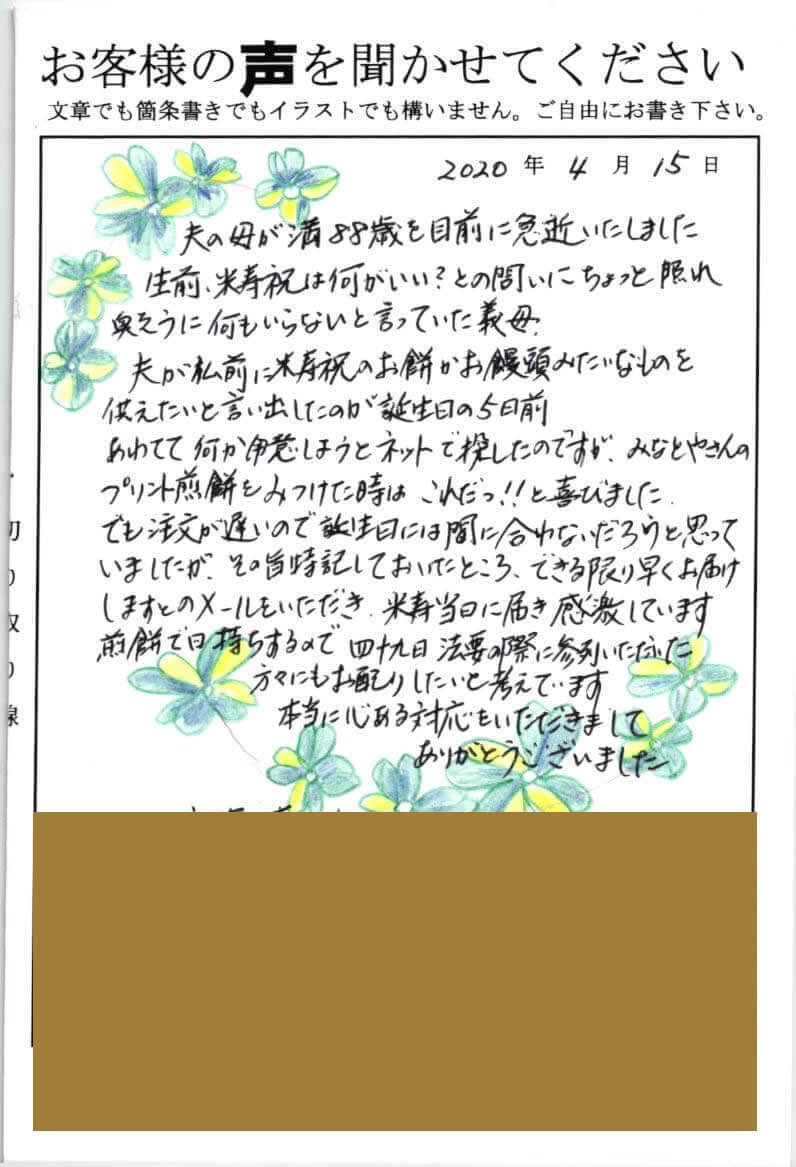 お客様の声を聞かせてください
文章でも箇条書きでもイラストでも構いません。ご自由にお書き下さい。
2020年4月15日
夫の母が満88歳を目前に急逝いたしました
生前、米寿祝は何がいい？との問いにちょっと照れ
臭そうに何もいらないと言っていた義母。
夫が仏前に米寿祝のお餅かお饅頭みたいなものを
供えたいと言い出したのが誕生日の5日前
あわてて何か用意しようとネットで探したのですが、みなとやさんの
プリント煎餅をみつけた時はこれだっ!!と喜びました。
でも注文が遅いので誕生日には間に合わないだろうと思って
いましたが、その旨特記しておいたところ、できる限り早くお届け
しますとのメールをいただき、米寿当日に届き感激しています
煎餅で日持ちするので四十九日法要の際に参列いただいた
方々にもお配りしたいと考えています
本当に心ある対応をいただきまして
ありがとうございました
切り取り線